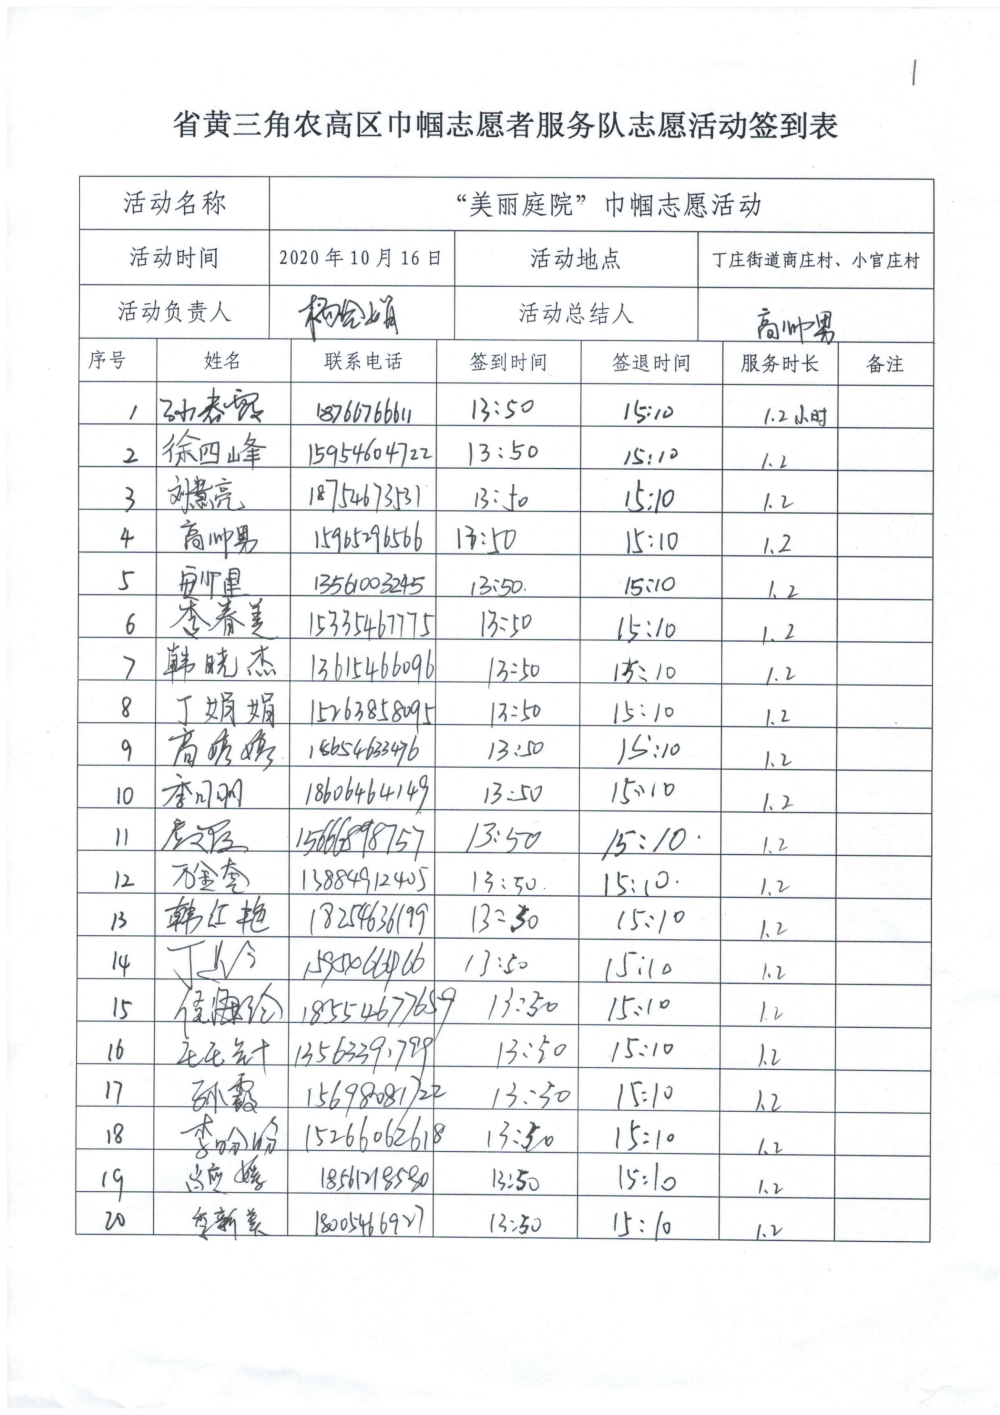 1
省黄三角农高区巾帼志愿者服务队志愿活动签到表
活动名称 “美丽庭院”巾帼志愿活动
活动时间 2020年10月16日 活动地点 丁庄街道南庄村、小官庄村
活动负责人 活动总结人 高帅男
序号 姓名 联系电话 签到时间 签退时间 服务时长 备注
1 孙春霞 18766766611 13:50 15:10 1.2小时
2 徐四峰 15954604722 13:50 15:10 1.2
3 刘慧亮 18754673531 13:50 15:10 1.2
4 高帅男 15965296566 13:50 15:10 1.2
5 13561003245 13:50. 15:10 1.2
6 李春美 15335467775 13:50 15:10 1.2
7 韩晓杰 13615466096 13:50 15:10 1.2
8 丁娟娟 15263858095 13:50 15:10 1.2
9 15654633476 13:50 15:10 1.2
10 18606464149 13:50 15:10 1.2
11 15666898757 13:50 15:10. 1.2
12 万金奎 13884912405 13:50. 15:10. 1.2
13 韩红艳 18254636199 13:50 15:10 1.2
14 13:50 15:10 1.2
15 18554677659 13:50 15:10 1.2
16 13563391799 13:50 15:10 1.2
17 孙霞 15698081722 13:50 15:10 1.2
18 李盼盼 15266062618 13:50 15:10 1.2
19 18561218580 13:50 15:10 1.2
20 李新美 18005466927 13:50 15:10 1.2